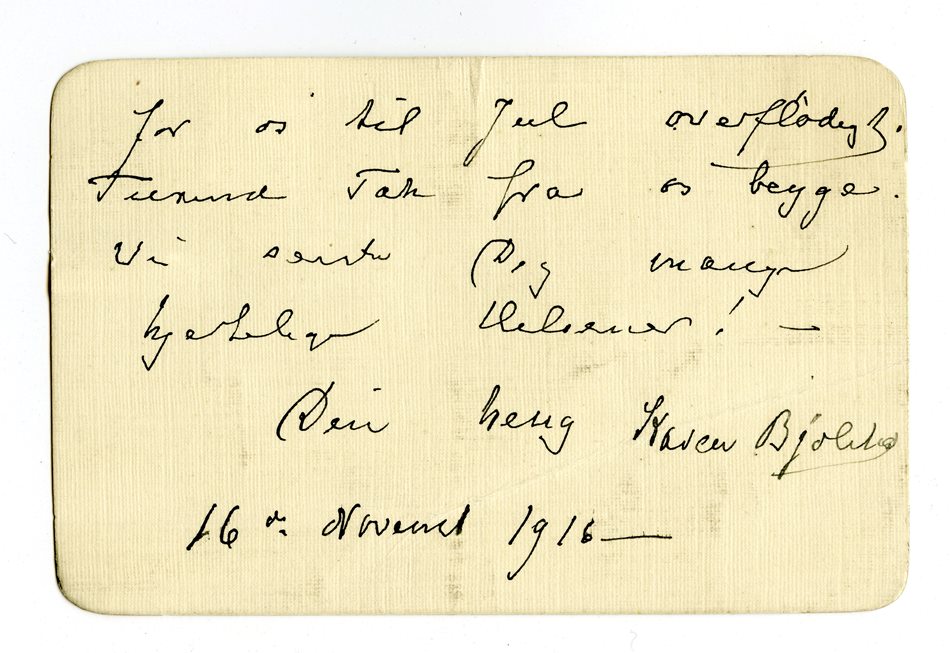 for os til Jul overflödigt.
Tusind Tak fra os begge.
Vi sender Dig mange
hjertelige Hilsener! —
Din heng Karen
16de Novembr 1916 —